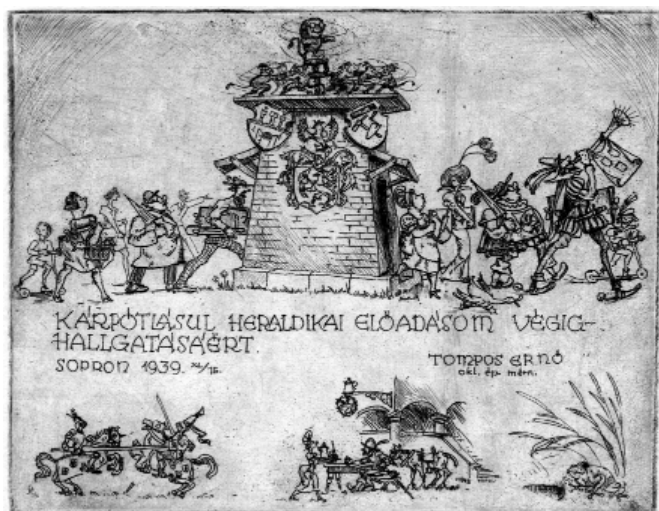 KÁRPÓTLÁSUL HERALDIKAI ELŐADÁSOM VÉGIG-
HALLGATÁSÁÉRT.
SOPRON 1939. XI/15.
TOMPOS ERNŐ
okl. ép. mérn.